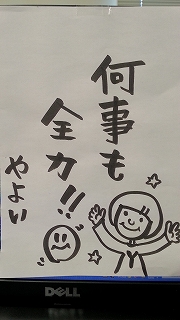 何事も
全力!!
やよい
DELL